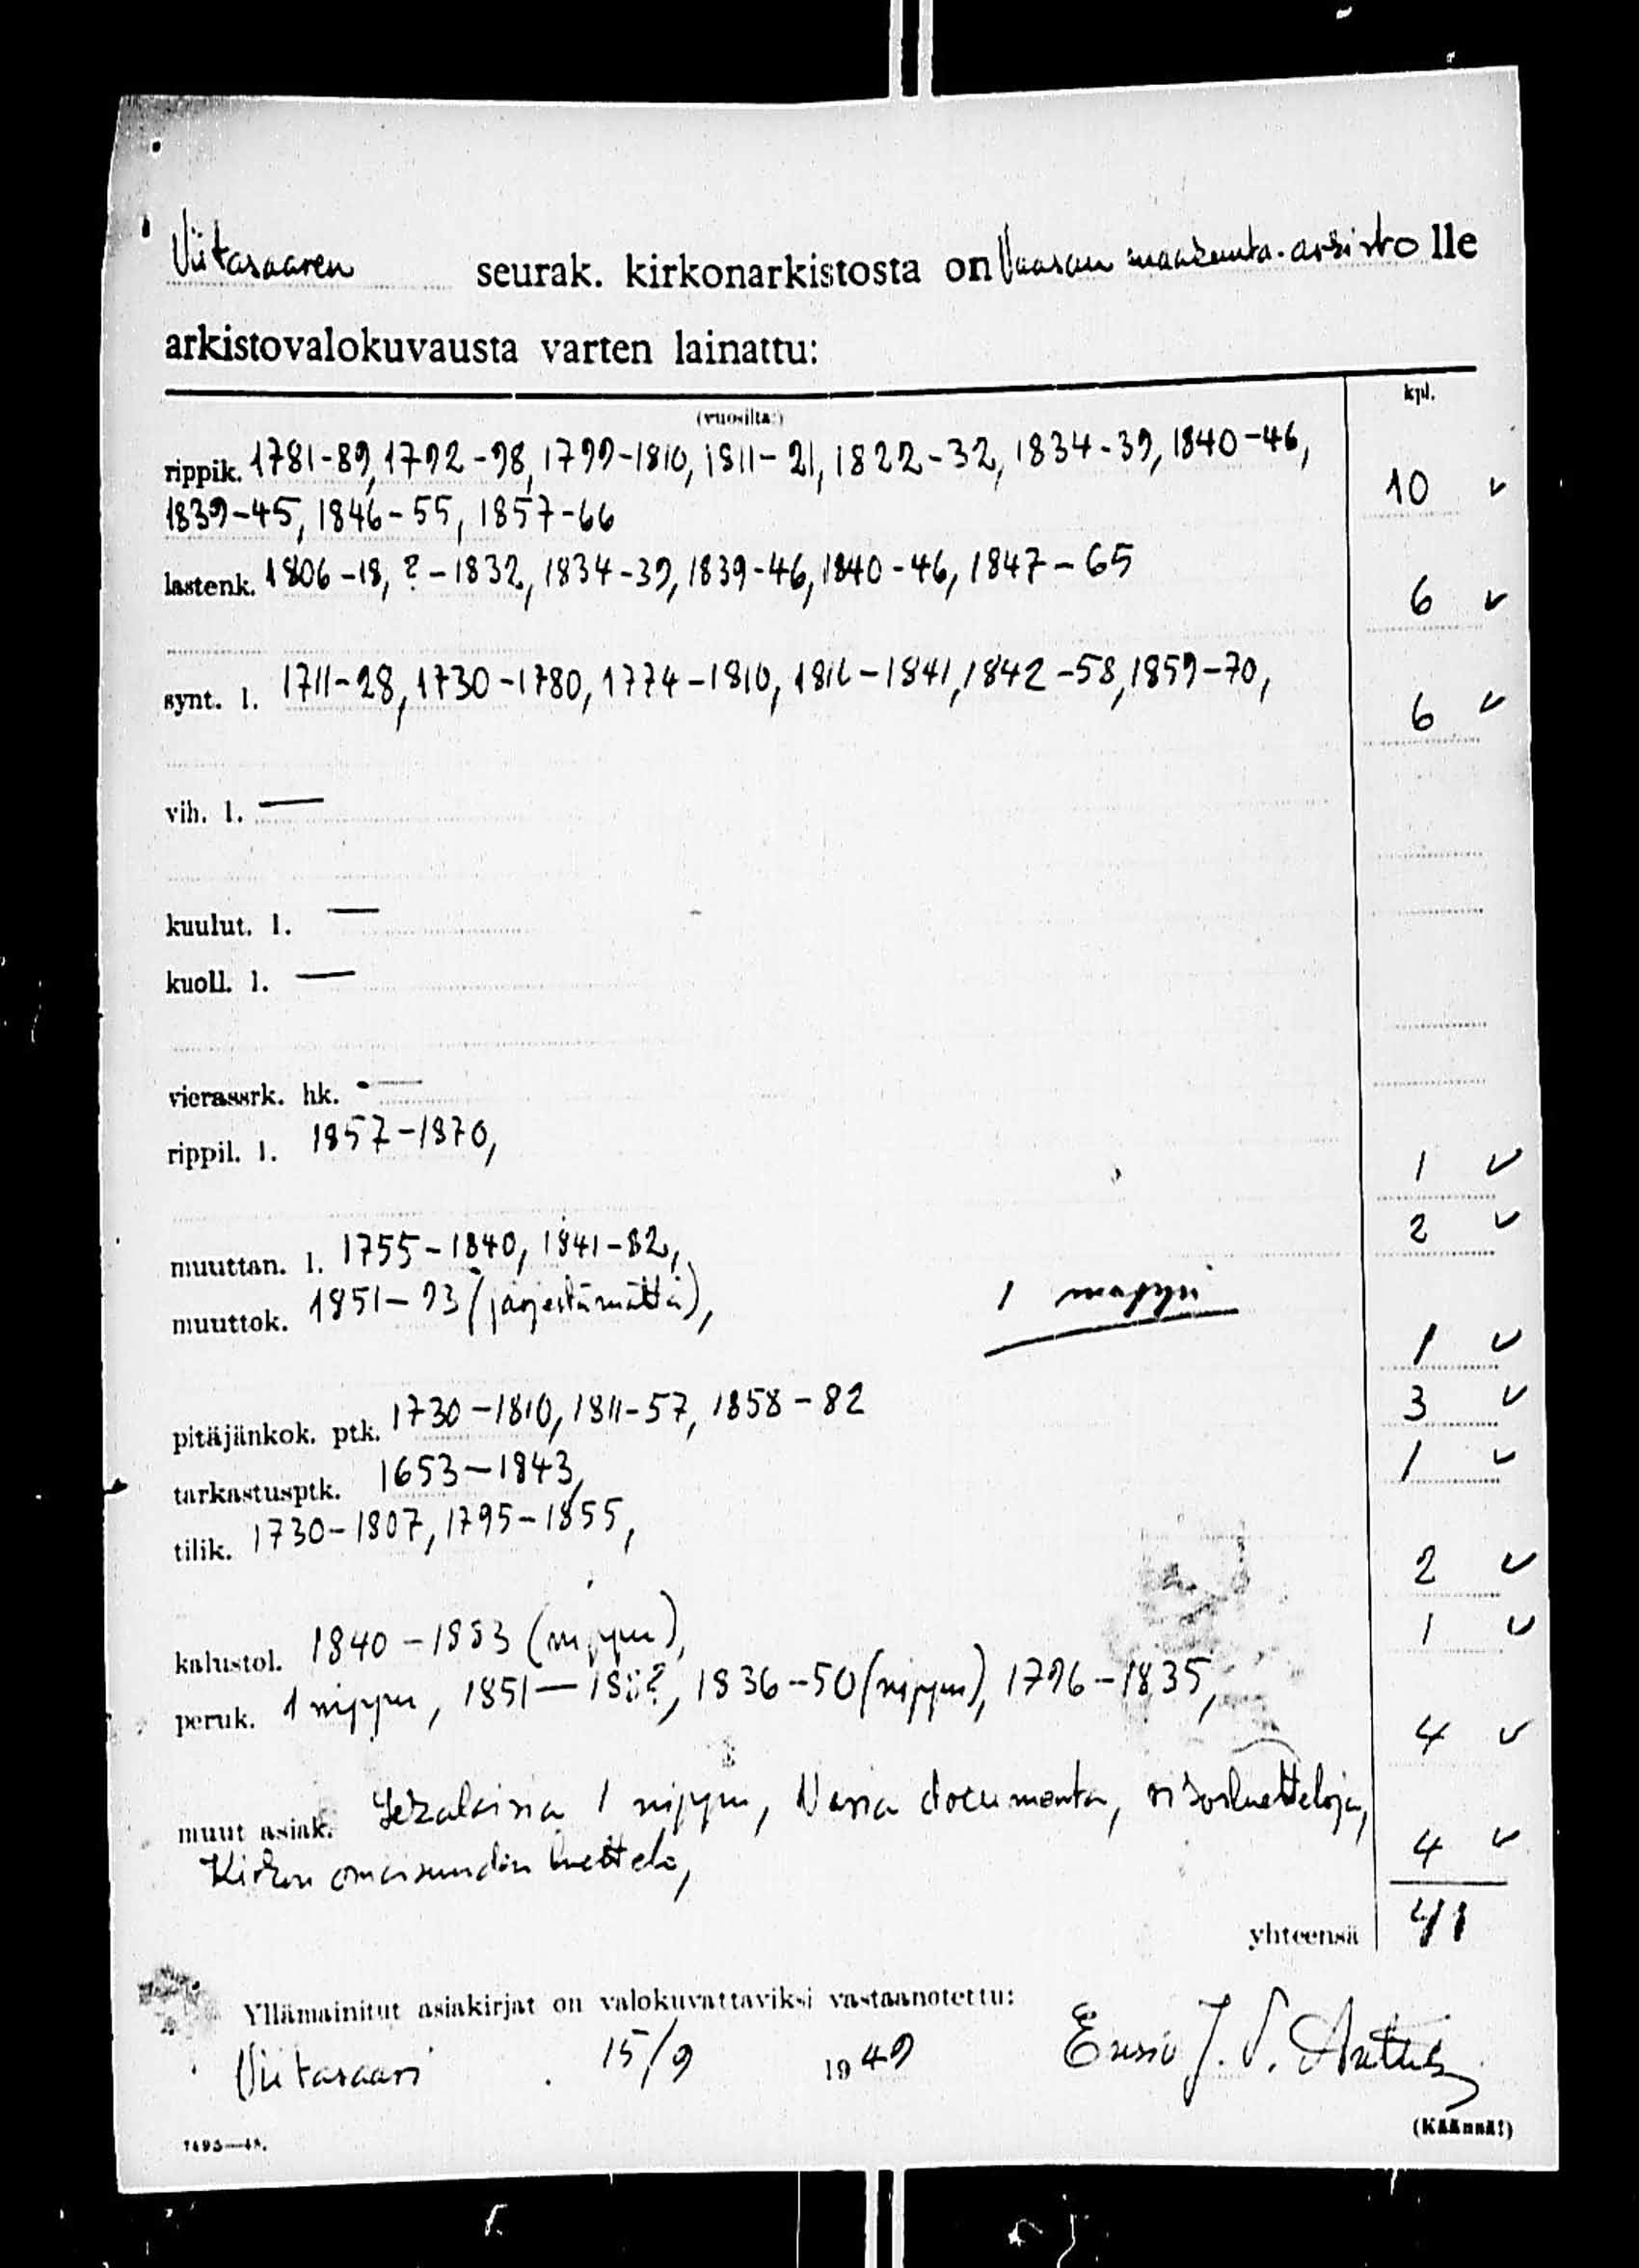 Viitasaaren seurak. kirkonarkistosta on Vaasan maakunta-arkisto lle
arkistovalokuvausta varten lainattu:
(vuosilta:) kpl.
rippik. 1781-89, 1792-98, 1799-1810, 1811-21, 1822-32, 1834-39, 1840-46,
1839-45, 1846-55, 1857-66 10 ✓
lastenk. 1806-18, ?-1832, 1834-39, 1839-46, 1840-46, 1847-65
6 ✓
synt. l. 1711-28, 1730-1780, 1774-1810, 1816-1841, 1842-58, 1859-70,
6 ✓
vih. l. —
kuulut. l. —
kuoll. l. —
vierassrk. hk. —
rippil. l. 1857-1870, 1 ✓
muuttan. l. 1755-1840, 1841-82, 2 ✓
muuttok. 1851-93 (järjestämättä), 1 mappi 1 ✓
pitäjänkok. ptk. 1730-1810, 1811-57, 1858-82 3 ✓
tarkastusptk. 1653-1843, 1 ✓
tilik. 1730-1807, 1795-1855, 2 ✓
kalustol. 1840-1883 (nippu), 1 ✓
peruk. 1 nippu, 1851-18?, 1836-50 (nippu), 1796-1835, 4 ✓
muut asiak. Sekalaisia 1 nippu, Varia documenta, 4 ✓
Kirkon omaisuuden luettelo,
yhteensä 41
Yllämainitut asiakirjat on valokuvattaviksi vastaanotettu:
Viitasaari 15/9 1949 Ensio J. S.
(Käännä!)
7495—48.